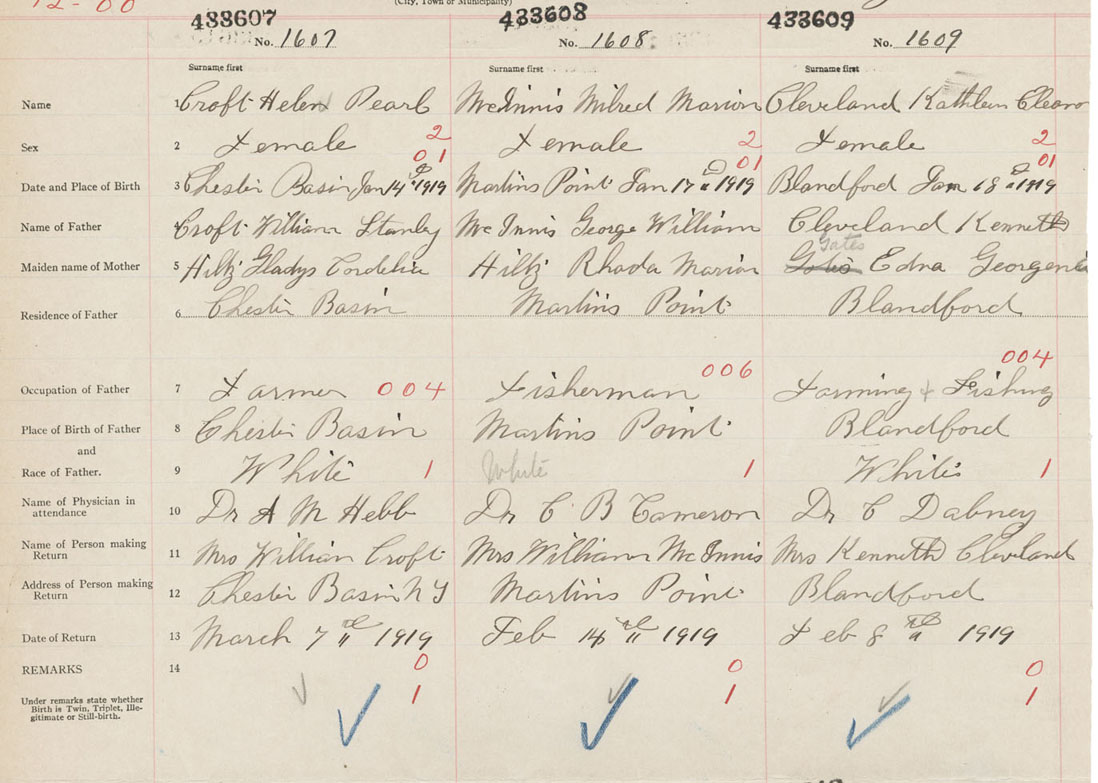 12-00
(City, Town or Municipality)
433607 433608 433609
No. 1607 No. 1608 No. 1609
Surname first Surname first Surname first
Name 1 Croft Helen Pearl McInnis Milred Marion Cleveland Kathleen Eleanor
2 2 2
Sex 2 Female Female Female
01 01 01
Date and Place of Birth 3 Chester Basin Jan 14th 1919 Martins Point Jan 17th 1919 Blandford Jan 18th 1919
Name of Father 4 Croft William Stanley McInnis George William Cleveland Kenneth
Gates
Maiden name of Mother 5 Hiltz Gladys Cordelia Hiltz Rhoda Marion Edna Georgenia
Residence of Father 6 Chester Basin Martins Point Blandford
006 004
Occupation of Father 7 Farmer 004 Fisherman Farming + Fishing
Place of Birth of Father 8 Chester Basin Martins Point Blandford
and
Race of Father. 9 White 1 White 1 White 1
Name of Physician in
attendance 10 Dr A M Hebb Dr C B Cameron Dr C Dabney
Name of Person making
Return 11 Mrs William Croft Mrs William McInnis Mrs Kenneth Cleveland
Address of Person making
Return 12 Chester Basin N S Martins Point Blandford
Date of Return 13 March 7th 1919 Feb 14th 1919 Feb 8th 1919
REMARKS 14 0 0 0
Under remarks state whether 1 1 1
Birth is Twin, Triplet, Ille-
gitimate or Still-birth.